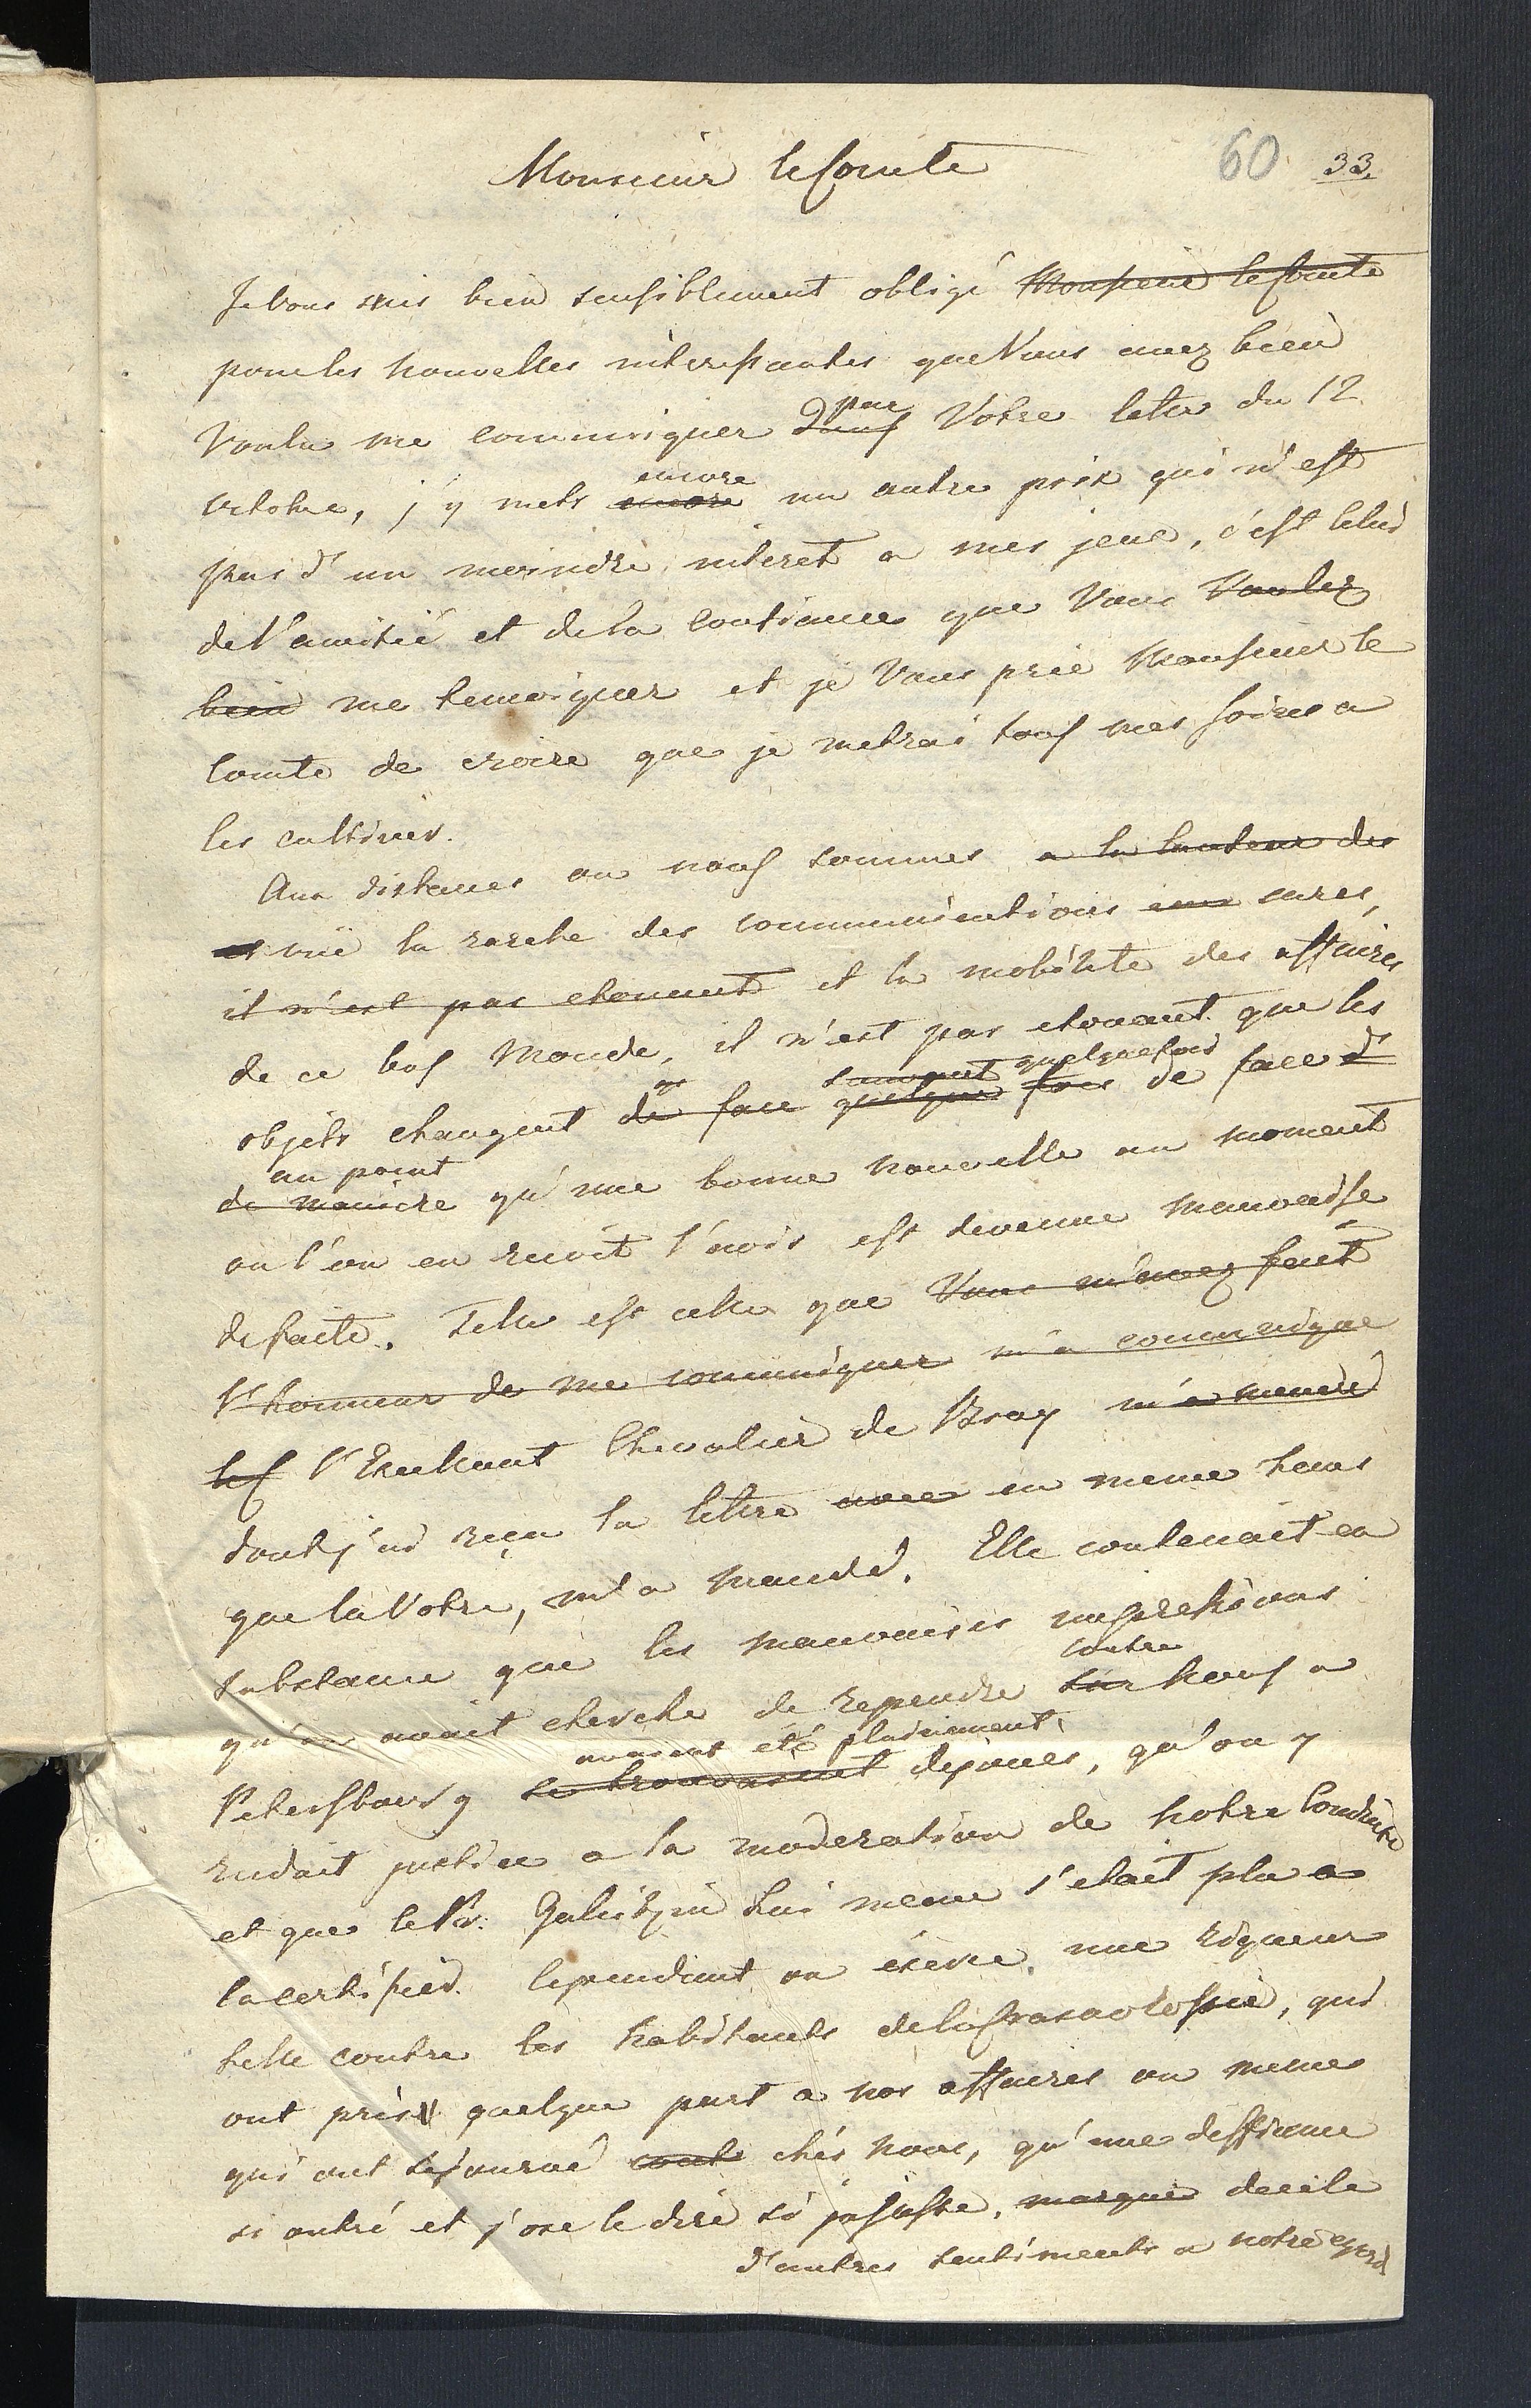 60 33.
Monsieur le Comte
Je vous suis bien sensiblement obligé Monsieur le Comte
pour les nouvelles interessantes que Vous avez bien
par
voulu me communiquer dans Votre lettre du 12
encore
octobre, j'y mets encore un autre prix qui n'est
pas d'un moindre interet a mes jeux, c'est celui
de l'amitié et de la confiance que Vous voulez
bien me temoigner et je Vous prie Monsieur le
Comte de croire que je metrai tous mes soins a
les cultiver.
Aux distances ou nous sommes a la hauteur des
et vuë la rareté des communications sures,
il n'est pas etonnant et la mobilité des affaires
de ce bas Monde, il n'est pas etonant que les
souvent quelquefois
objets changent de face quelque fois de face d
au point
de maniere qu'une bonne nouvelle au moment
ou l'on en recoit l'avis est devenue mauvaise
de faite. Telle est celle que Vous m'avez fait
l'honneur de me communiquer m'a communiqué
l'Excellent Chevalier de Bray m'a mandé
dont j'ai reçu la lettre avec en meme tems
que la Votre, m'a mandé. Elle contenait en
substance que les mauvaises impressions
contre
qu'on avait cherché de rependre sur nous a
avaient été pleinement
Petersbourg se trouvaient dejouées, qu'on y
rendait justice a la moderation de notre conduite
et que le Pr. Galitzin Lui meme s'etait plu a
la certifier. Cependant on exerce une rigueur
telle contre les habitants de la Krasnorossie, qui
ont pris quelque part a nos affaires ou meme
qui ont sejourné chés nous, qu'une deffiance
si outré et j'ose le dire si injuste, marque decele
d'autres sentiments a notre egard